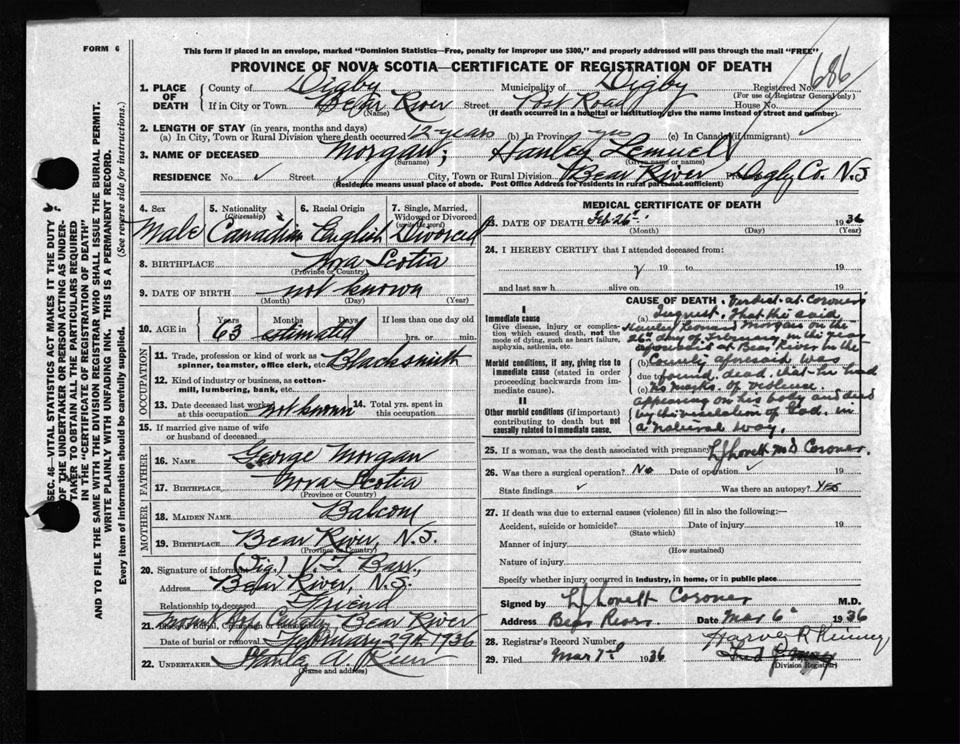 FORM 6
This form if placed in an envelope, marked "Dominion Statistics—Free, penalty for improper use $300," and properly addressed will pass through the mail "FREE"
PROVINCE OF NOVA SCOTIA—CERTIFICATE OF REGISTRATION OF DEATH
686
1. PLACE OF DEATH
County of Digby Municipality of Digby Registered No.
(For use of Registrar General only)
If in City or Town Bear River Street Post Road House No.
(Name) (If death occurred in a hospital or institution, give the name instead of street and number)
2. LENGTH OF STAY (in years, months and days)
(a) In City, Town or Rural Division where death occurred 12 years (b) In Province yes (c) In Canada (if immigrant) ✓
3. NAME OF DECEASED Morgan, Hanley Lemuel
(Surname) (Given name or names)
RESIDENCE No. ✓ Street City, Town or Rural Division Bear River Digby Co. N.S
(Residence means usual place of abode. Post Office Address for residents in rural parts not sufficient)
4. Sex 5. Nationality (Citizenship) 6. Racial Origin 7. Single, Married, Widowed or Divorced (write the word)
Male Canadian English Divorced
8. BIRTHPLACE Nova Scotia
(Province or Country)
9. DATE OF BIRTH not known
(Month) (Day) (Year)
10. AGE in Years Months Days If less than one day
63 estimated hrs. or min.
OCCUPATION
11. Trade, profession or kind of work as spinner, teamster, office clerk, etc. Blacksmith
12. Kind of industry or business, as cotton-mill, lumbering, bank, etc.
13. Date deceased last worked at this occupation not known 14. Total yrs. spent in this occupation
15. If married give name of wife or husband of deceased
FATHER
16. NAME George Morgan
17. BIRTHPLACE Nova Scotia
(Province or Country)
MOTHER
18. MAIDEN NAME Balcom
19. BIRTHPLACE Bear River, N.S.
(Province or Country)
20. Signature of informant (Sig.) V. T. Barr,
Address Bear River, N.S.
Relationship to deceased Friend
21. Mount Hope Bear River
Date of burial or removal February 29th 1936
22. UNDERTAKER
(Name and address)
MEDICAL CERTIFICATE OF DEATH
23. DATE OF DEATH Feb 26th 1936
(Month) (Day) (Year)
24. I HEREBY CERTIFY that I attended deceased from:
19 to 19
and last saw h alive on 19
I
Immediate cause
Give disease, injury or complication which caused death, not the mode of dying, such as heart failure, asphyxia, asthenia, etc.
Morbid conditions, if any, giving rise to immediate cause (stated in order proceeding backwards from immediate cause).
II
Other morbid conditions (if important) contributing to death but not causally related to immediate cause.
CAUSE OF DEATH. Verdict at Coroners
(a) Inquest. That the said
Hanley Leonard Morgan on the
26th day of February in the year
aforesaid at Bear River in the
(b) County aforesaid was
due to found dead. that he had
(c) no marks of violence
appearing on his body and died
by the visitation of God. in
a natural way.
L J Lovett M.D Coroner.
25. If a woman, was the death associated with pregnancy?
26. Was there a surgical operation? No Date of operation ✓
State findings ✓ Was there an autopsy? Yes
27. If death was due to external causes (violence) fill in also the following:—
Accident, suicide or homicide? Date of injury 19
(State which)
Manner of injury
(How sustained)
Nature of injury
Specify whether injury occurred in industry, in home, or in public place
Signed by L J Lovett Coroner M.D.
Address Bear River Date Mar 6th 1936
28. Registrar's Record Number
29. Filed Mar 7th 1936 Harvey R
Division Registrar
SEC. 46—VITAL STATISTICS ACT MAKES IT THE DUTY OF THE UNDERTAKER OR PERSON ACTING AS UNDERTAKER TO OBTAIN ALL THE PARTICULARS REQUIRED IN THE "CERTIFICATE OF REGISTRATION OF DEATH"
AND TO FILE THE SAME WITH THE DIVISION REGISTRAR WHO SHALL ISSUE THE BURIAL PERMIT.
WRITE PLAINLY WITH UNFADING INK. THIS IS A PERMANENT RECORD.
Every item of information should be carefully supplied. (See reverse side for instructions.)